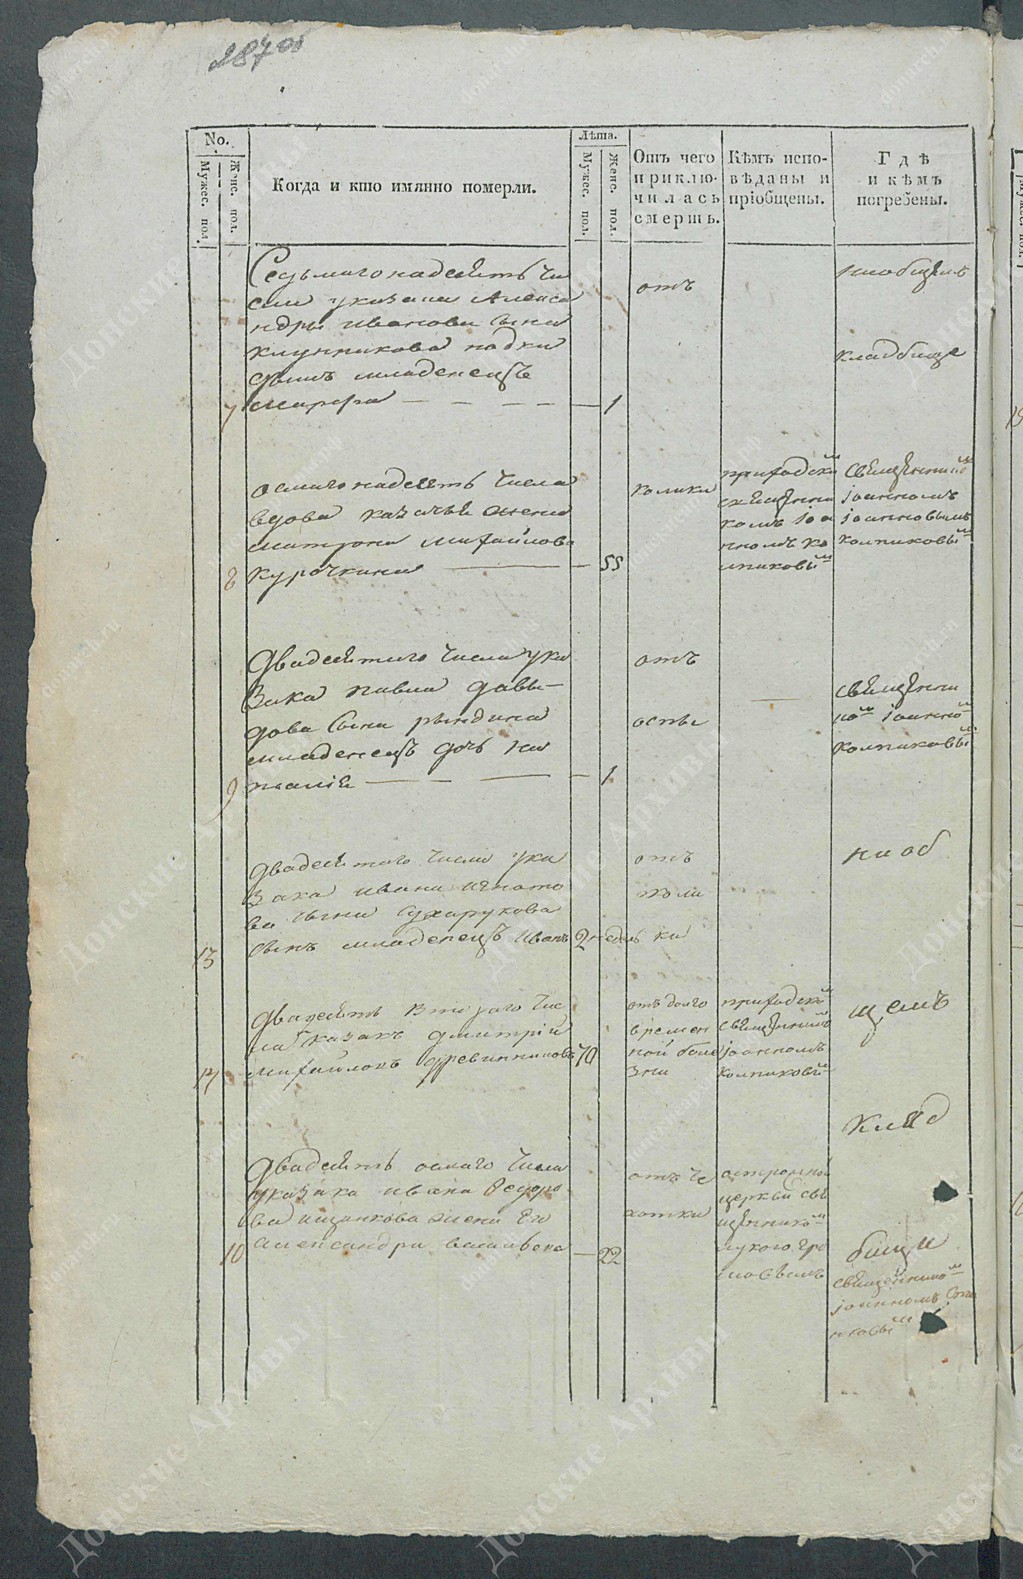 287 об
No.
Мужес. пол.
Женс. пол.
Когда и кто имянно померли.
Лѣта.
Мужес. пол.
Женс. пол.
Отъ чего
приклю-
чилась
смерть.
Кѣмъ испо-
вѣданы и
пріобщены.
Гдѣ
и кѣмъ
погребены.
Седьмагонадесять чи
сла указака Алекса
ндры иванова сына
младенецъ
марфа 1
7
отъ
на общемъ
кладбище
осмагонадесять числа
вдова казачья жена
матрона михайлова
Курочкина 55
8
колики
приходски
священни
комъ іоа
нномъ ко
лпиковым
священником
іоанномъ
іоанновымъ
колпиковым
Двадсятого числа ука
зака павла давы
дова сына рындина
младенецъ дочь на
талія 1
9
отъ
оспы
священни
ком іоанном
колпиковым
двадсятого числа ука
зака ивана игнато
ва сына сухорукова
сынъ младенецъ иванъ 2 недель ка
13
отъ
на об
Двадсять втораго чис
ла казакъ дмитрій
михайловъ деревянниковъ 70
14
отъ долго
времен
ной боле
зни
приходским
священником
іоанномъ
колпиковым
щемъ
клад
Двадсять осмаго числа
указака ивана Федоро
ва жена ево
александра васильевна 22
10
отъ че
хотки
церкви свя
щенником
бище
священником
іоанномъ
Донские Архивы
donarch.ru
донархив.рф